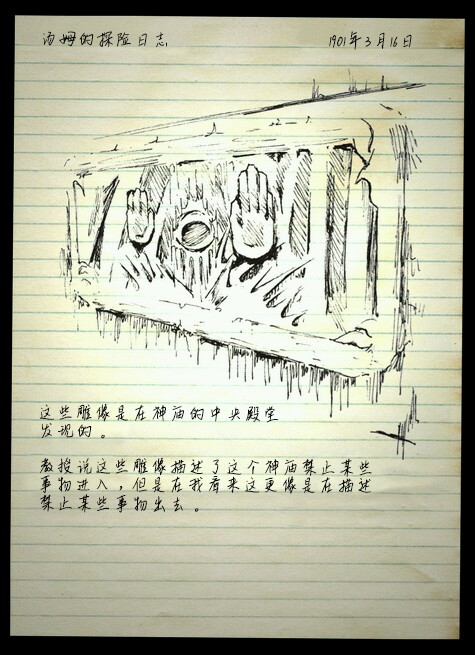 汤姆的探险日志
1901年3月16日
这些雕像是在神庙的中央殿堂
发现的。
教授说这些雕像描述了这个神庙禁止某些
事物进入，但是在我看来这更像是在描述
禁止某些事物出去。